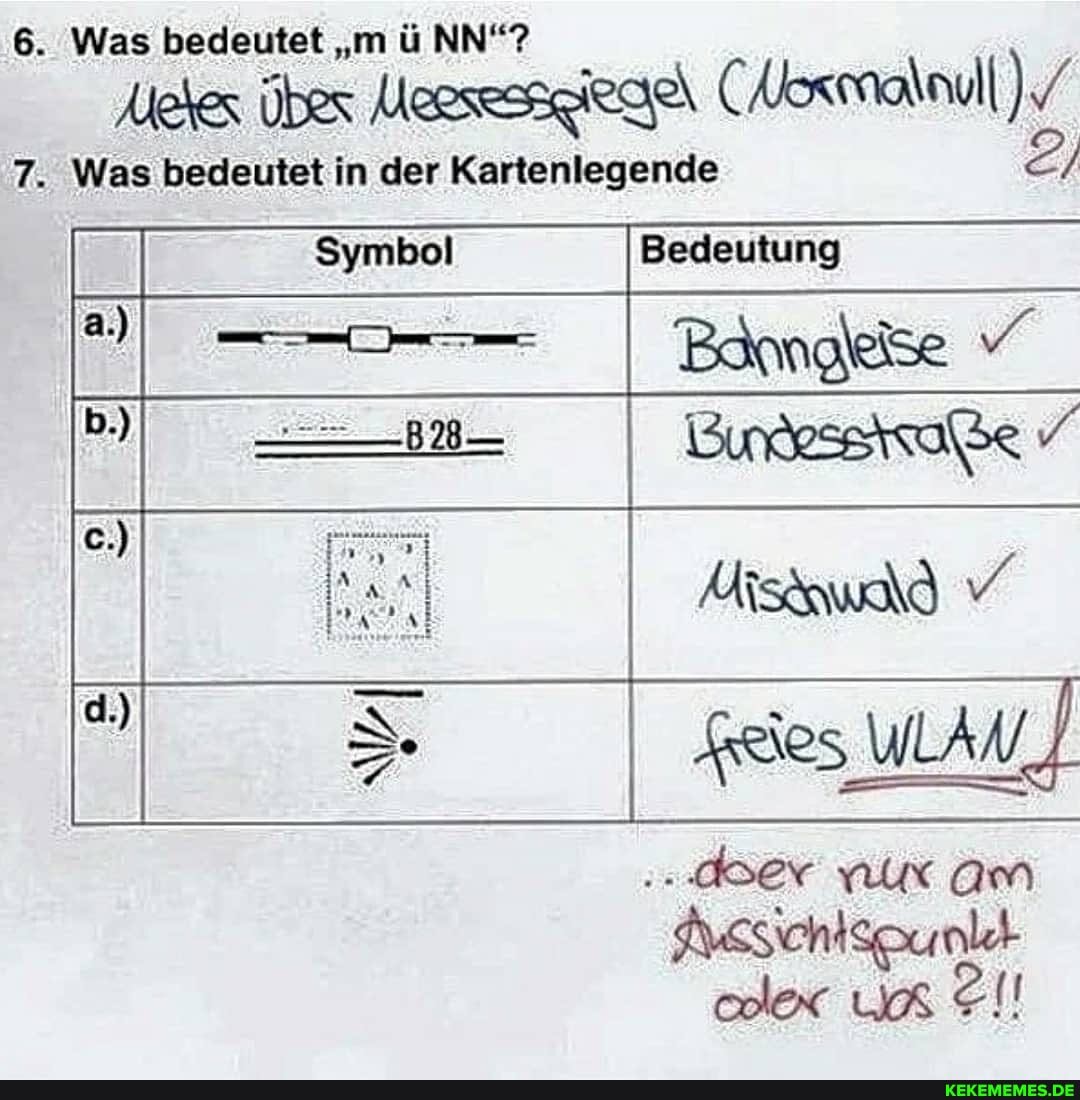 6. Was bedeutet „m ü NN“?
Meter über Meeresspiegel (Normalnull) ✓
2/
7. Was bedeutet in der Kartenlegende
Symbol Bedeutung
a.) Bahngleise ✓
b.) B 28 Bundesstraße ✓
c.) Mischwald ✓
d.) freies WLAN
...aber nur am
Aussichtspunkt
oder was?!!
KEKEMEMES.DE